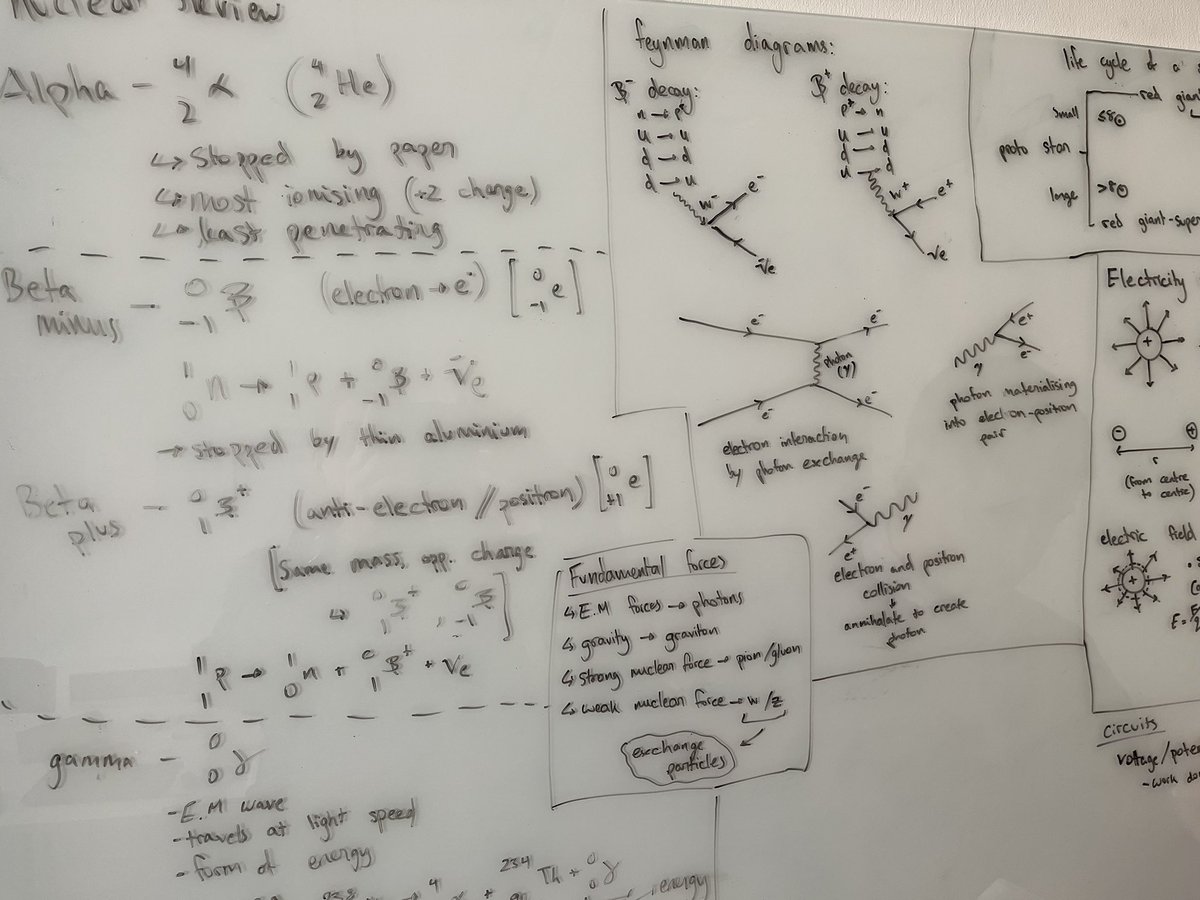 nuclear review
Alpha - ⁴₂α (⁴₂He)
↳ Stopped by paper
↳ most ionising (+2 change)
↳ least penetrating
Beta minus - ⁰₋₁β (electron → e⁻) [⁰₋₁e]
¹₀n → ¹₁p + ⁰₋₁β + v̄e
→ stopped by thin aluminium
Beta plus - ⁰₁β⁺ (anti-electron // positron) [⁰₊₁e]
[Same mass, opp. change
↳ ⁰₁β⁺, ⁰₋₁β]
¹₁p → ¹₀n + ⁰₁β⁺ + ve
gamma - ⁰₀γ
- E.M wave
- travels at light speed
- form of energy
²³⁴Th + ⁰₀γ
energy
feynman diagrams:
β⁻ decay:
n → p⁺
u → u
d → d
d → u
w⁻
e⁻
v̄e
β⁺ decay:
p⁺ → n
u → u
d → d
u → d
w⁺
e⁺
ve
e⁻
e⁻
photon
(γ)
e⁻
e⁻
electron interaction
by photon exchange
e⁺
e⁻
γ
photon materialising
into electron-positron
pair
e⁻
γ
e⁺
electron and position
collision
↓
annihalate to create
photon
Fundamental forces
↳ E.M forces → photons
↳ gravity → graviton
↳ strong nuclear force → pion/gluon
↳ weak nuclear force → w/z
exchange
particles
life cycle of a
small
red giant
≤8⊙
proto star
large
>8⊙
red giant-super
Electricity
+
⊖ ⊕
r
(from centre
to centre)
electric field
+
E =
circuits
voltage/poten
- work do